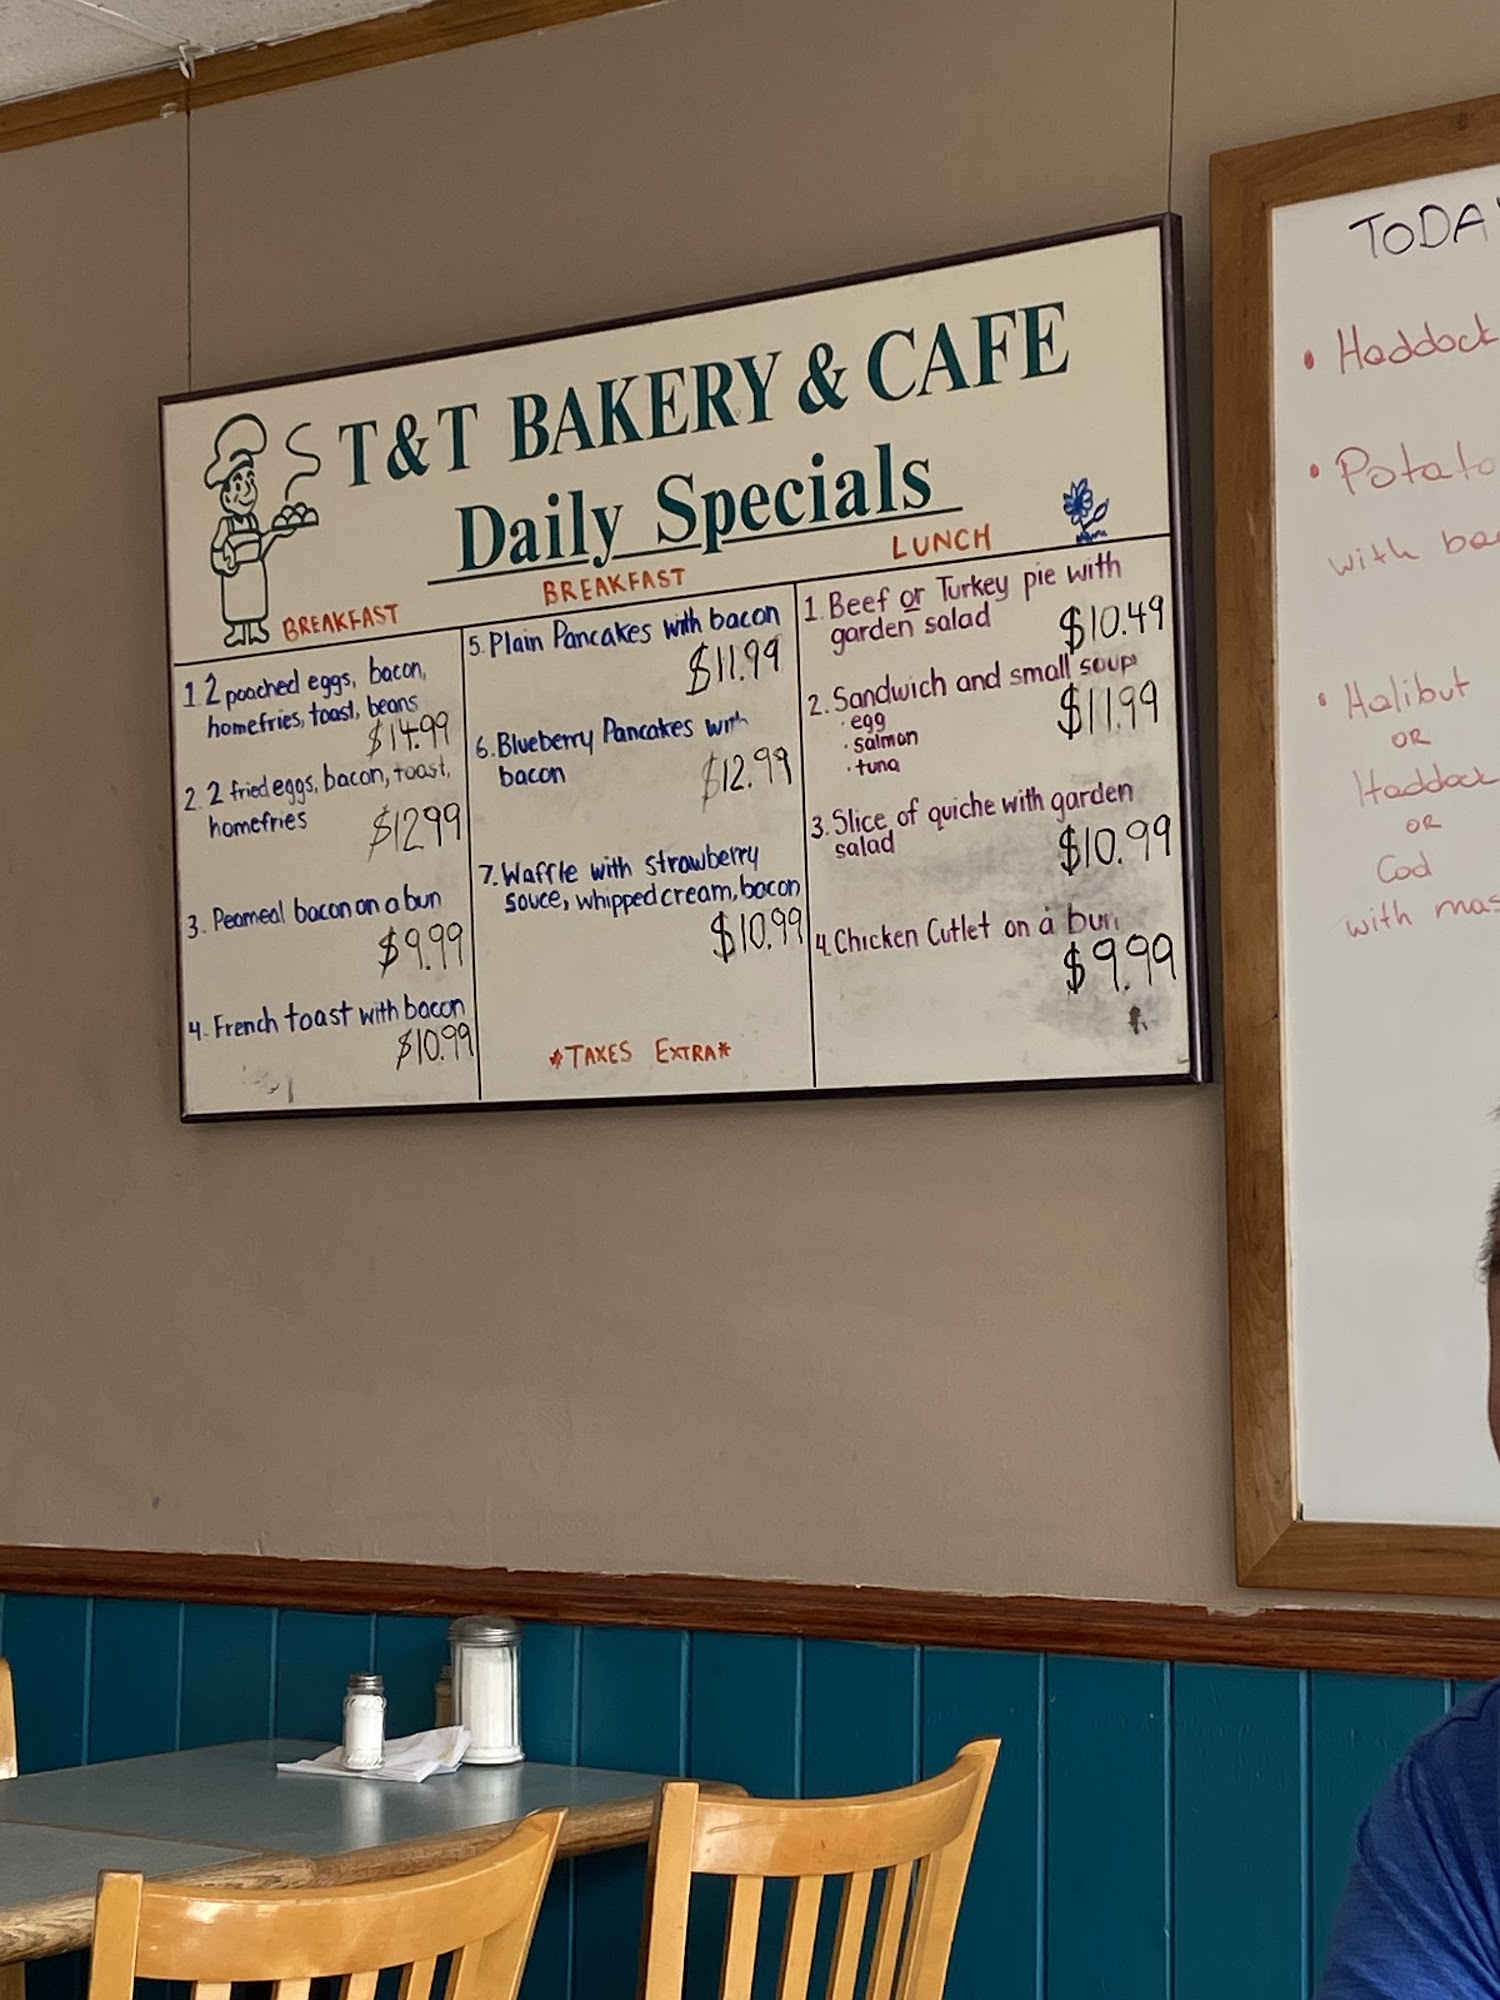 T&T BAKERY & CAFE
Daily Specials
BREAKFAST
1. 2 poached eggs, bacon,
homefries, toast, beans
$14.99
2. 2 fried eggs, bacon, toast,
homefries
$12.99
3. Peameal bacon on a bun
$9.99
4. French toast with bacon
$10.99
BREAKFAST
5. Plain Pancakes with bacon
$11.99
6. Blueberry Pancakes with
bacon
$12.99
7. Waffle with strawberry
souce, whipped cream, bacon
$10.99
*TAXES EXTRA*
LUNCH
1. Beef or Turkey pie with
garden salad
$10.49
2. Sandwich and small soup
· egg
· salmon
· tuna
$11.99
3. Slice of quiche with garden
salad
$10.99
4. Chicken Cutlet on a bun
$9.99
TODAY
• Haddock
• Potato
with
• Halibut
OR
Haddock
OR
Cod
with